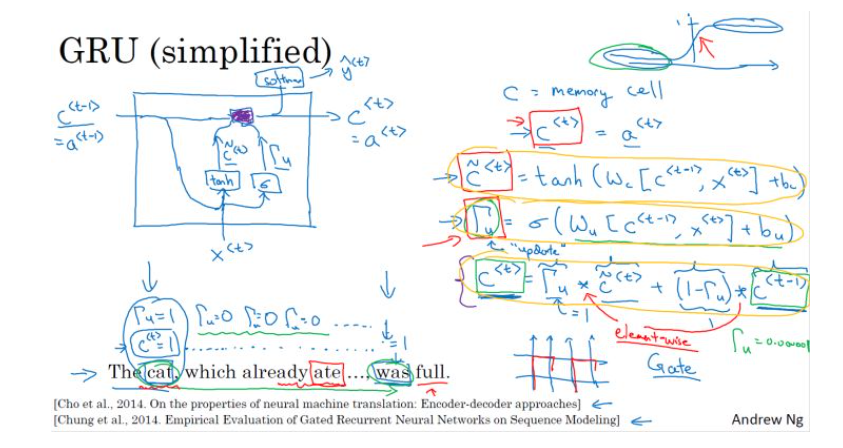 GRU (simplified)
softmax → ŷ<t>
c<t-1>
= a<t-1>
c<t>
= a<t>
c̃<t>
Γu
tanh
σ
x<t>
C = memory cell
→ c<t> = a<t>
→ c̃<t> = tanh (Wc [c<t-1>, x<t>] + bc)
→ Γu = σ (Wu [c<t-1>, x<t>] + bu)
"update"
c<t> = Γu * c̃<t> + (1-Γu) * c<t-1>
element-wise
Γu = 0.000001
Gate
Γu=1 Γu=0 Γu=0 Γu=0 .....
c<t>=1 ..... =1
→ The cat, which already ate …, was full.
[Cho et al., 2014. On the properties of neural machine translation: Encoder-decoder approaches] ←
[Chung et al., 2014. Empirical Evaluation of Gated Recurrent Neural Networks on Sequence Modeling] ←
Andrew Ng